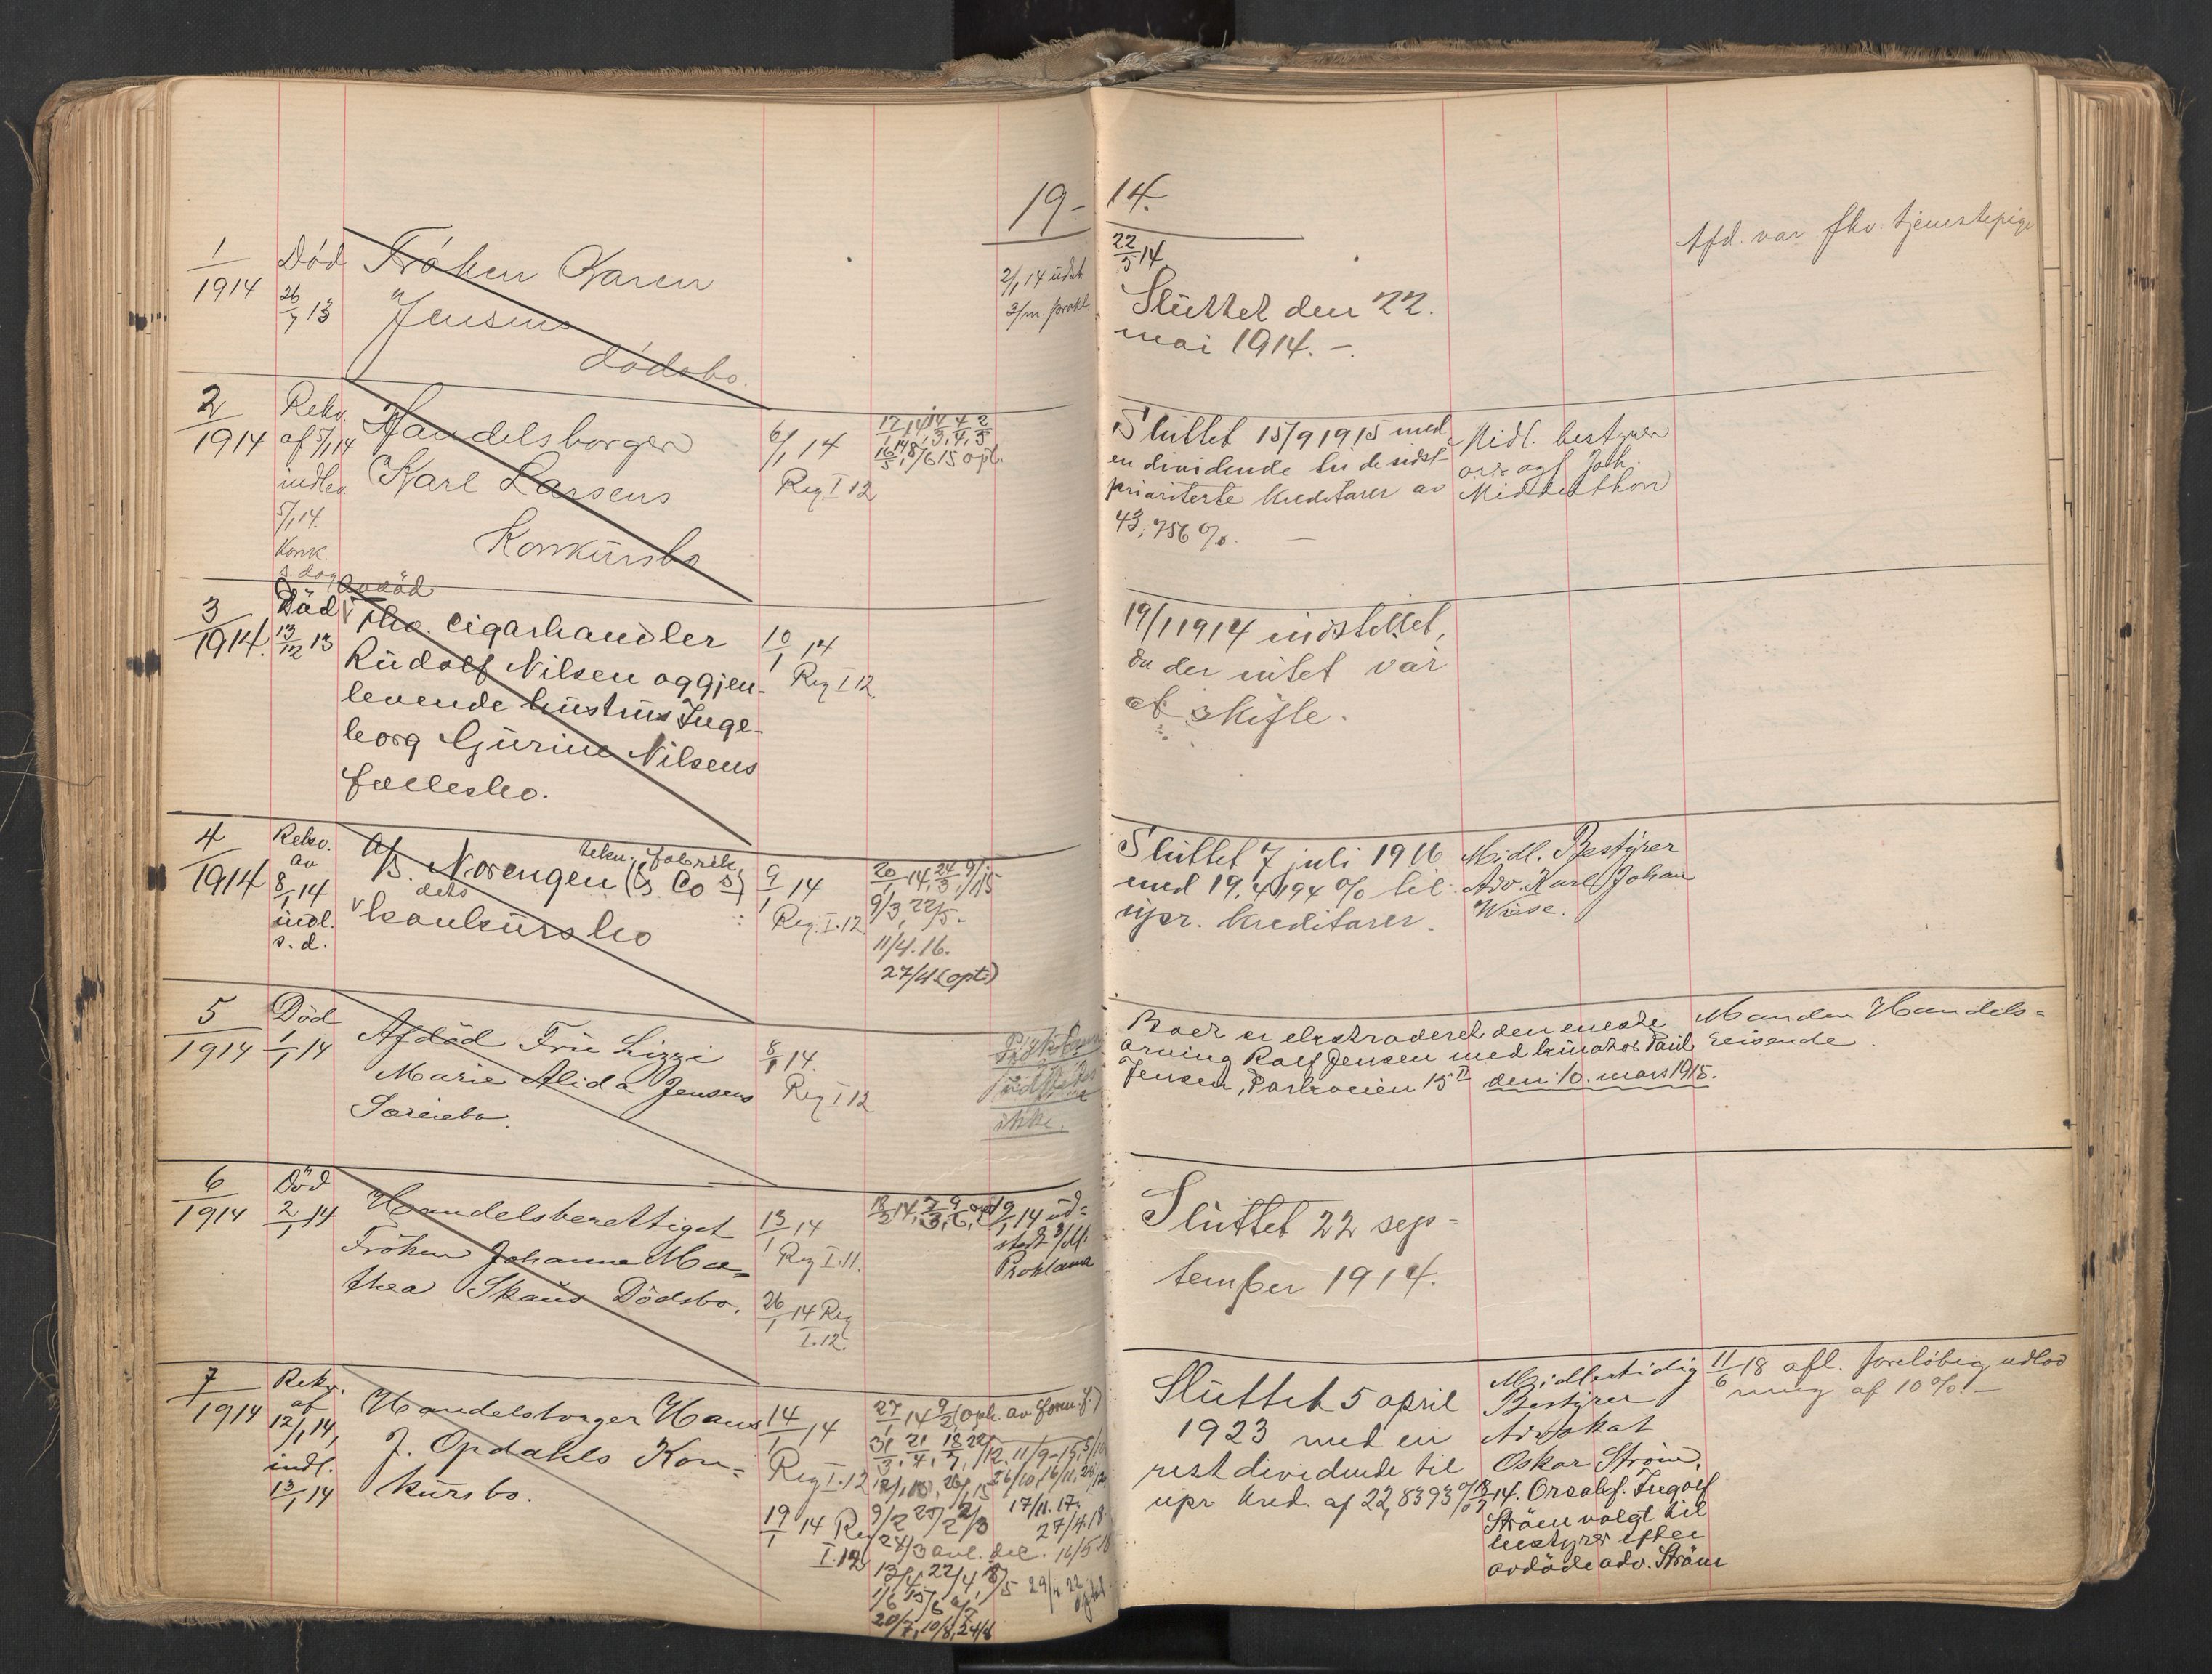 19-14.
1/1914
Død 26/7 13
Frøken Karen
Jensens
dødsbo.
2/1 14 udst.
3/m. prokl.
22/5 14
Sluttet den 22.
mai 1914. –.
Afd. var fhv. tjenestepige
2/1914
Rekv.
af 5/1 14
indlev.
5/1 14.
Konk.
s. dag
Handelsborger
Karl Larsens
Konkursbo
6/1 14
Reg I 12
Sluttet 15/9 1915 med
en dividende til de sidst
prioriterte kreditorer av
43,756 %.
Midl. bestyrer
Middelthon
3/1914.
Død
13/12 13
avdød
fhv. cigarhandler
Rudolf Nilsen og gjen-
levende hustrus Inge-
borg Gurine Nilsens
fællesbo.
10/1 14
Reg I 12
19/1 1914 indstillet,
da der intet var
at skifte.
4/1914
Rekv.
av
8/1 14
indl.
s. d.
A/S. Norengen tekn. fabrik
dets
konkursbo
9/1 14
Reg. I. 12.
20/1 14, 24/3, 9/1 15
9/3, 22/5 -
11/4. 16.
27/4 (opt.)
Sluttet 7 juli 1916
med 19,4194 % til
upr. kreditorer.
Midl. Bestyrer
Adv. Karl Johan
Wiese.
5/1914
Død
1/1 14
Afdød Fru Lizzi
Marie Alida Jensens
Særeiebo.
8/1 14.
Reg I 12
Proklama
udstedes
ikke.
Boet er ekstraderet den eneste
arving Rolf Jensen med kurator Paul
Jensen, Parkveien 15 II den 10. mars 1915.
Manden Handels-
reisende.
6/1914
Død
2/1 14
Handelsberettiget
Frøken Johanne Ma-
thea Skaus Dødsbo.
13/1 14
Reg I. 11.
26/1 14 Reg
I. 12.
19/1 14 ud-
stedt 3/M.
Proklama
Sluttet 22 sep-
tember 1914.
7/1914
Rekv.
af
12/1 14,
indl.
13/1 14
Handelsborger Hans
J. Opdahls Kon-
kursbo.
14/1 14
Reg I. 12
19/1 14 Reg
I. 12
27/1 14
17/11. 17.
27/4. 18
13/4 22/4 8/5
20/7, 10/8, 24/8
Sluttet 5 april
1923 med en
restdividende til
upr kred. af 22,8393 %
Midlertidig
Bestyrer
Advokat
Oskar Strøm.
14. Orsakf. Ingolf
Strøm valgt til
bestyrer efter
avdøde adv. Strøm
11/6 18 afl. foreløbig udlod
ning af 10 %. –